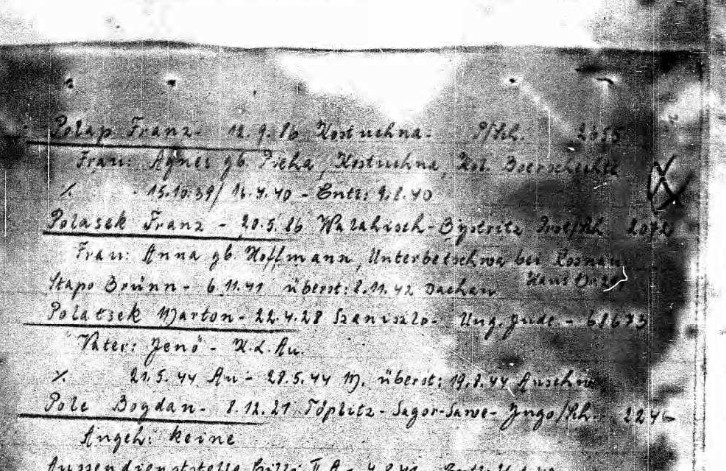 Polap Franz - 12.9.86 Kostuchna - P/Sch. 2655
Frau: Agnes gb. Preha, Kostuchna, Kol. Boerschächte
% - 15.10.39/ 16.4.40 - Entl: 9.2.40
Polasek Franz - 20.5.86 Walahisch-Bystritz Prot/Sch. 2072
Frau: Anna gb. Hoffmann, Unterbetschwa bei Rosnau
Stapo Brünn - 6.11.41 überst: 8.11.42 Dachau Haus Nr.
Polatsek Marton - 22.4.28 Szaniszlo - Ung. Jude - 68673
Vater: Jenö - K.L. Au.
% 21.5.44 Au - 28.5.44 M. überst: 19.8.44 Auschw
Pole Bogdan - 8.12.21 Töplitz-Sagor-Sawe - Jugo/Sch. 2246
Angeh: keine
Aussendienststelle Cilli